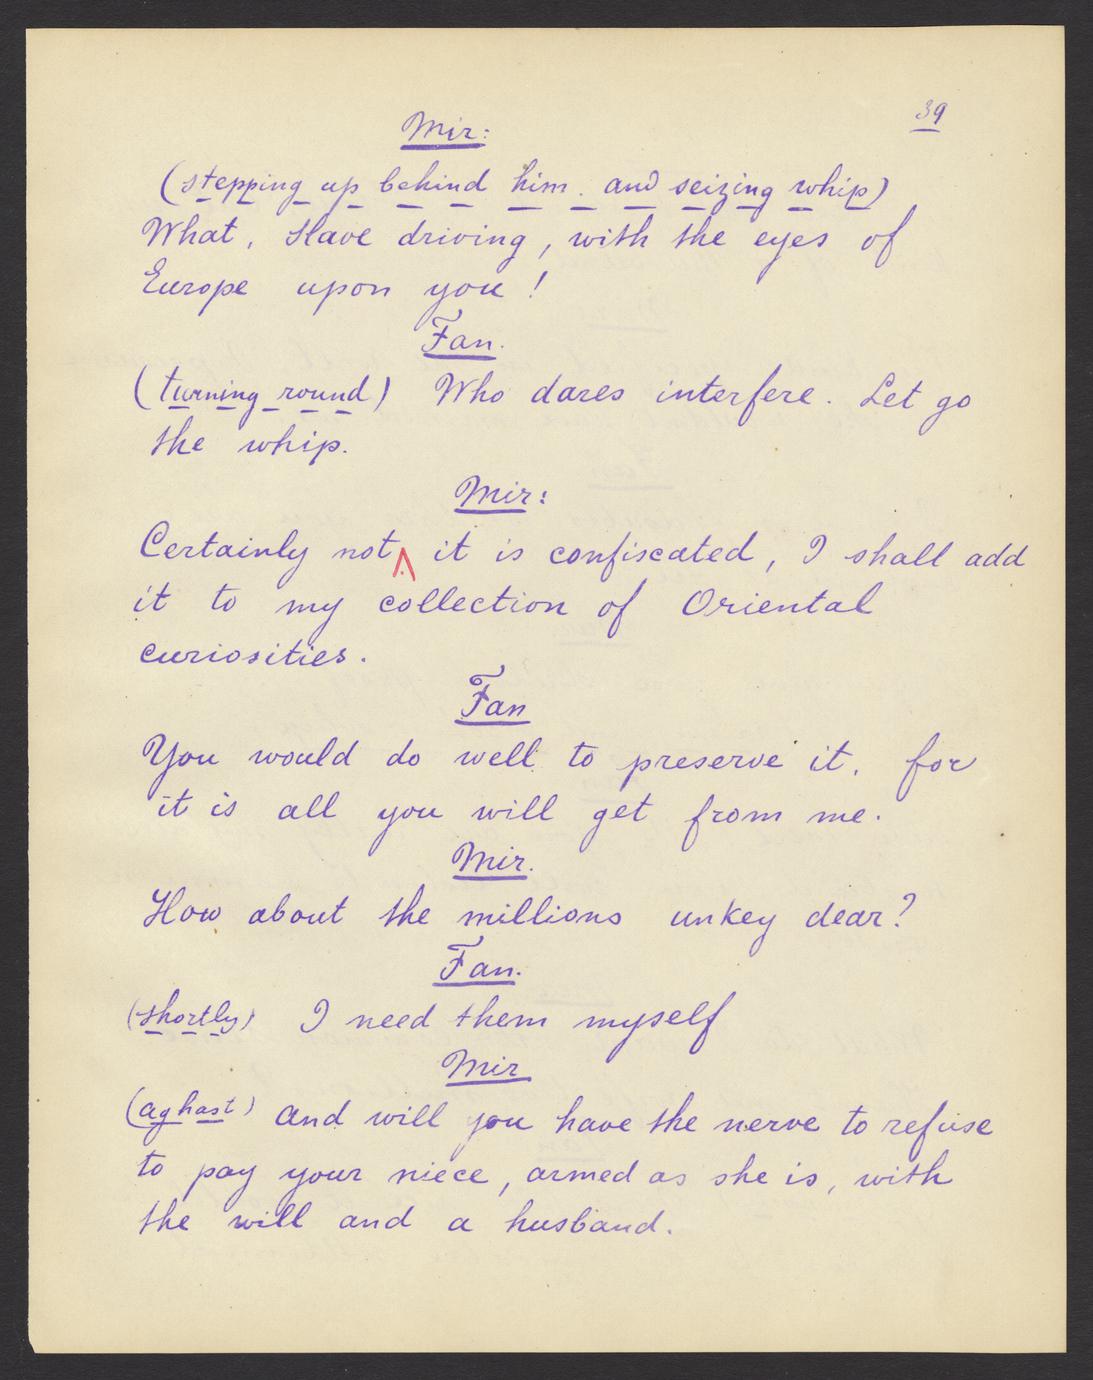 39
Mir:
(stepping up behind him. and seizing whip)
What, slave driving, with the eyes of
Europe upon you!
Fan.
(turning round) Who dares interfere. Let go
the whip.
Mir:
Certainly not, it is confiscated, I shall add
it to my collection of Oriental
curiosities.
Fan
You would do well to preserve it. for
it is all you will get from me.
Mir.
How about the millions unkey dear?
Fan.
(shortly) I need them myself
Mir
(aghast) and will you have the nerve to refuse
to pay your niece, armed as she is, with
the will and a husband.